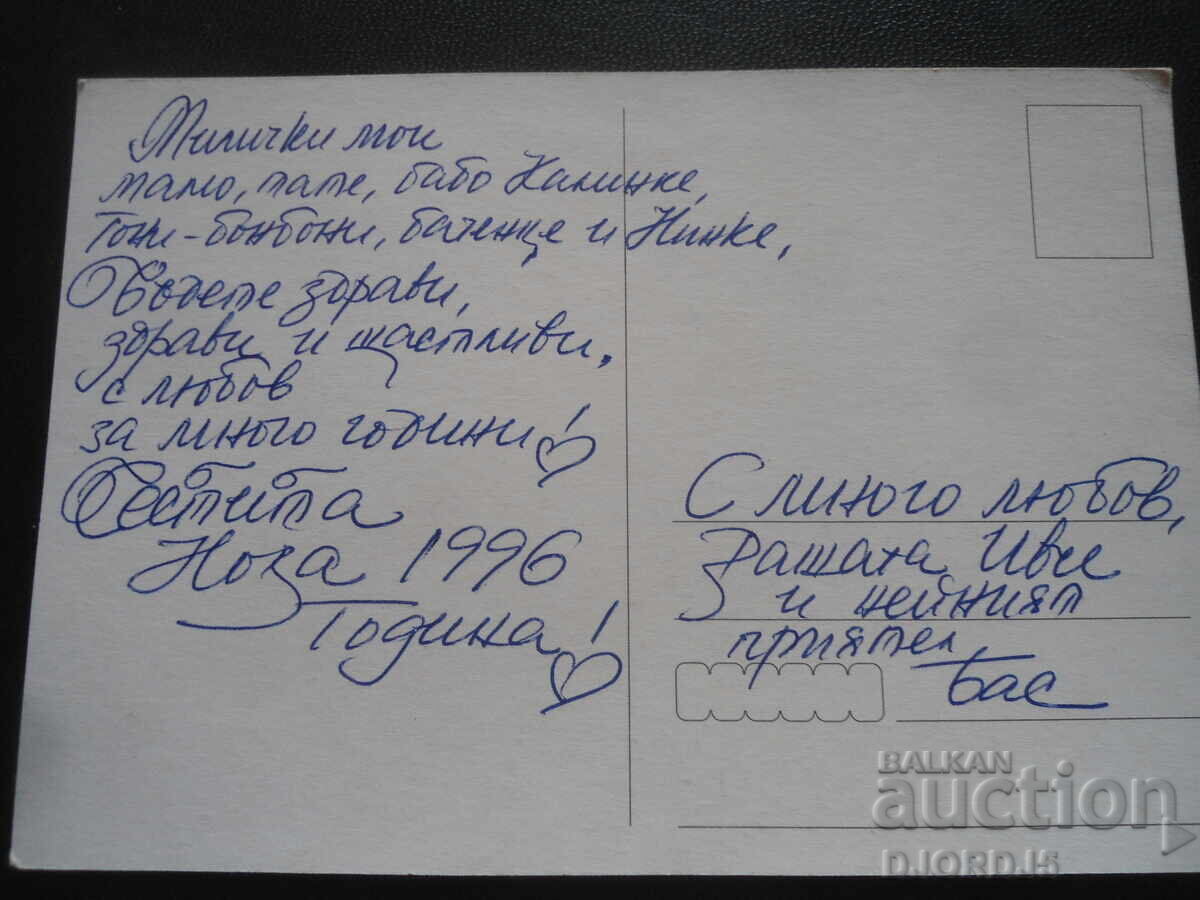 Милички мои
мамо, тате, бабо Калинке,
Тони-бонбони, баченце и Нинке,
Бъдете здрави,
здрави и щастливи,
с любов
за много години!
Честита
Нова 1996
Година!
С много любов,
Вашата Иви
и нейният
приятел
Бас
BALKAN
auction
DJORDJ5